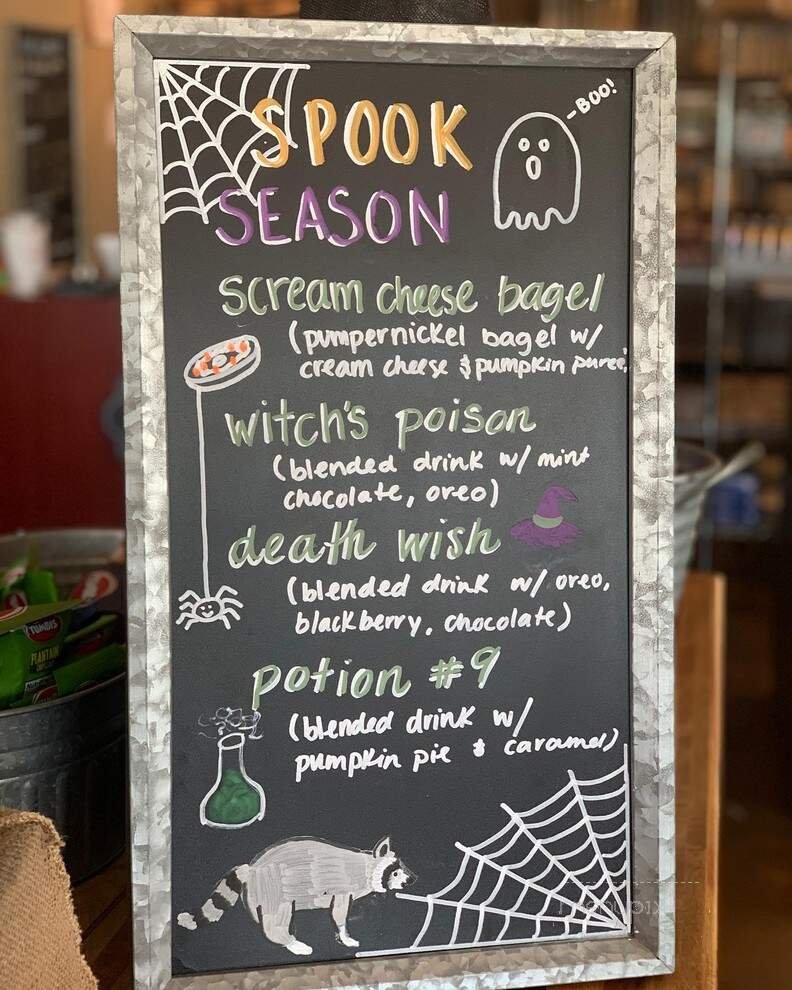 SPOOK
- BOO!
SEASON
scream cheese bagel
(pumpernickel bagel w/
cream cheese & pumpkin puree)
witch's poison
(blended drink w/ mint
chocolate, oreo)
death wish
(blended drink w/ oreo,
blackberry, chocolate)
potion #9
(blended drink w/
pumpkin pie & caramel)
TOM'S
PLANTAIN